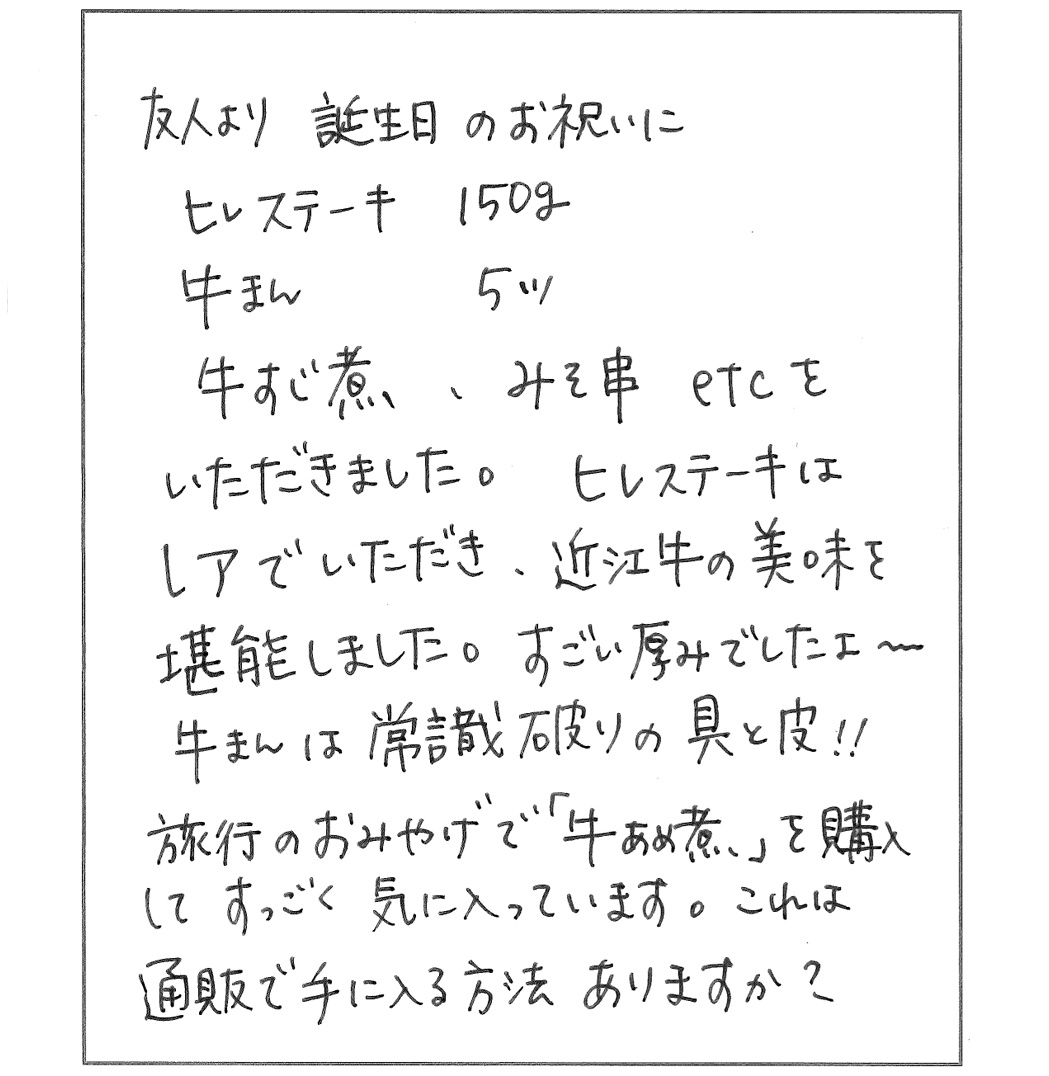 友人より 誕生日のお祝いに
ヒレステーキ 150g
牛まん 5ツ
牛すじ煮、みそ串 etcを
いただきました。 ヒレステーキは
レアでいただき、近江牛の美味を
堪能しました。すごい厚みでしたェ〜
牛まんは常識破りの具と皮!!
旅行のおみやげで「牛あめ煮」を購入
して すっごく 気に入っています。これは
通販で手に入る方法 ありますか?